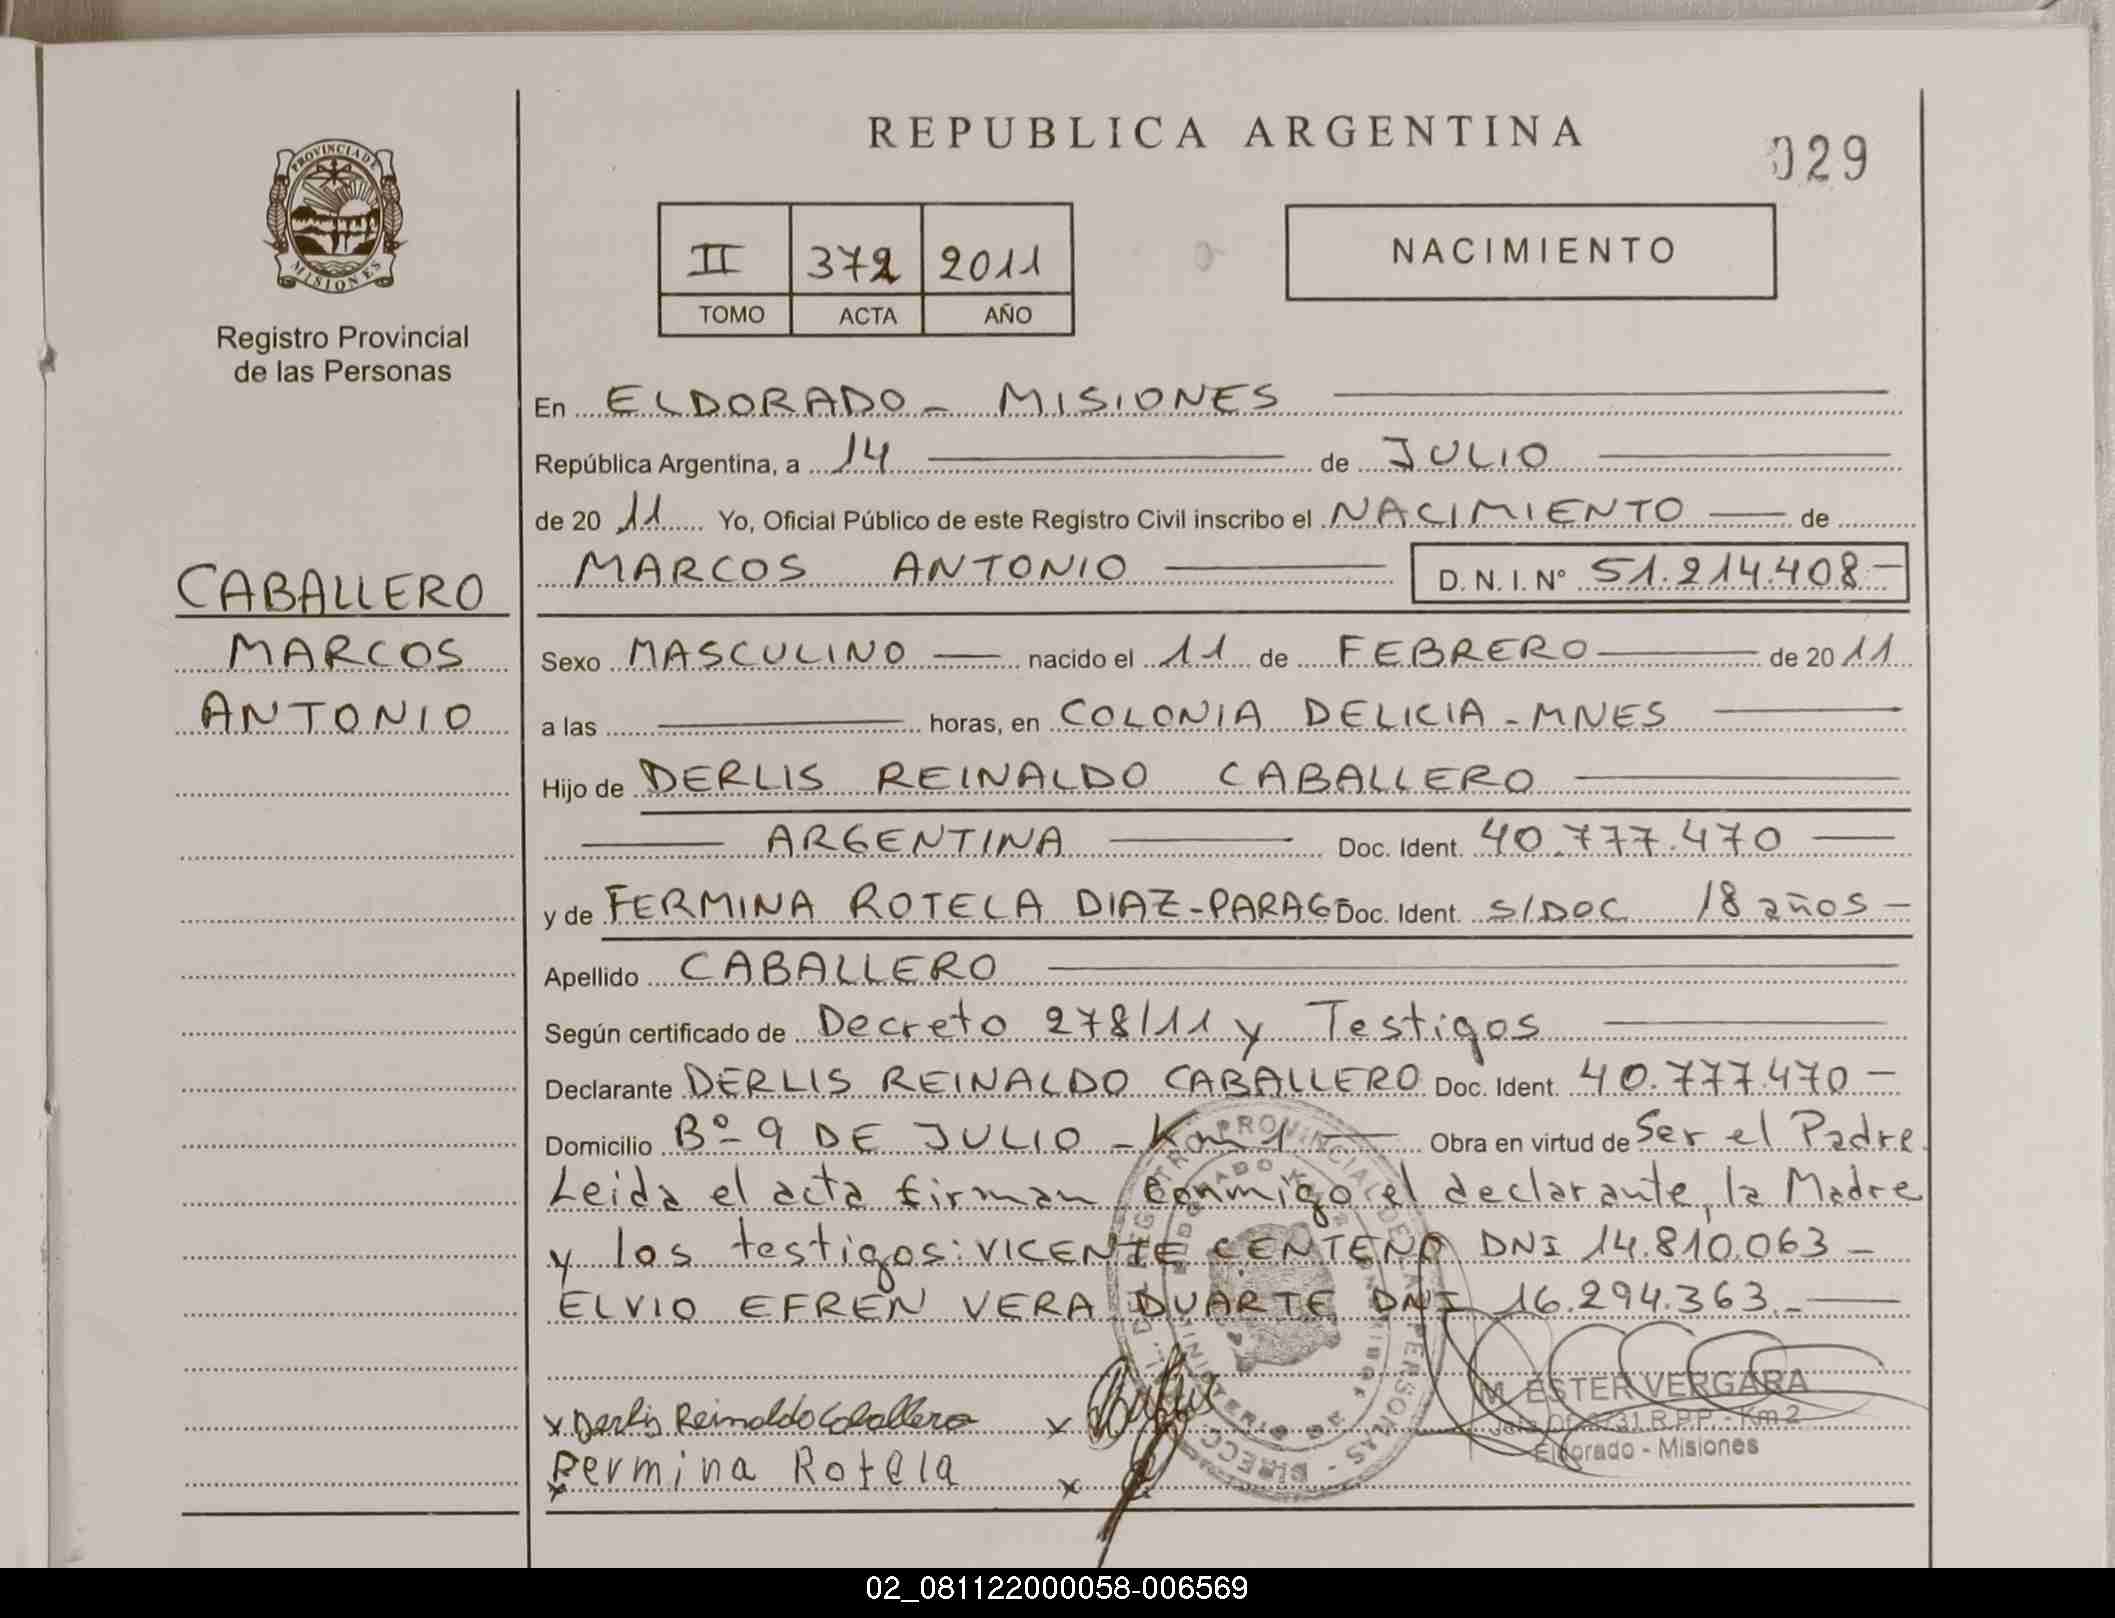 REPUBLICA ARGENTINA
029
PROVINCIA DE
MISIONES
Registro Provincial
de las Personas
II 372 2011
TOMO ACTA AÑO
NACIMIENTO
CABALLERO
MARCOS
ANTONIO
En ELDORADO - MISIONES
República Argentina, a 14 de JULIO
de 20 11 Yo, Oficial Público de este Registro Civil inscribo el NACIMIENTO de
MARCOS ANTONIO D. N. I. N° 51.214.408-
Sexo MASCULINO nacido el 11 de FEBRERO de 20 11
a las horas, en COLONIA DELICIA - MNES
Hijo de DERLIS REINALDO CABALLERO
ARGENTINA Doc. Ident. 40.777.470
y de FERMINA ROTELA DIAZ-PARAG Doc. Ident. S/DOC 18 años -
Apellido CABALLERO
Según certificado de Decreto 278/11 y Testigos
Declarante DERLIS REINALDO CABALLERO Doc. Ident. 40.777.470 -
Domicilio Bº- 9 DE JULIO - Km 1 Obra en virtud de Ser el Padre
Leida el acta firman conmigo el declarante, la Madre
y los testigos: VICENTE CENTENO DNI 14.810.063 -
ELVIO EFREN VERA DUARTE DNI 16.294.363.-
x Derlis Reinaldo Caballero x
Fermina Rotela
x x
M. ESTER VERGARA
Jefa Of. 3731 R.P.P. - Km 2
Eldorado - Misiones
02_081122000058-006569